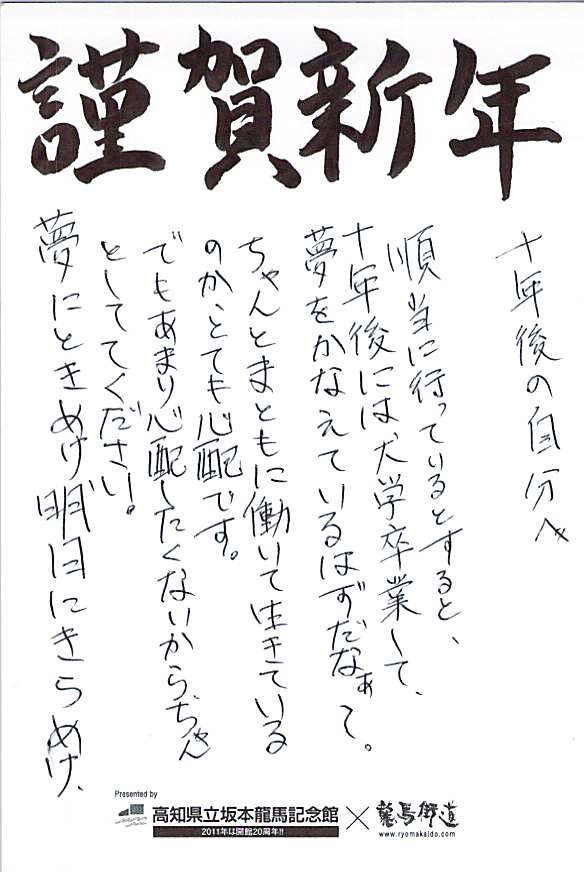 謹賀新年
十年後の自分へ
順当に行っているとすると、
十年後には犬学卒業して、
夢をかなえているはずだなぁって。
ちゃんとまともに働いて生きている
のか、とても心配です。
でもあまり心配したくないから、ちゃん
としててください。
夢にときめけ明日にきらめけ、
Presented by
高知県立坂本龍馬記念館×龍馬街道
2011年は開館20周年!!
www.ryomakaido.com